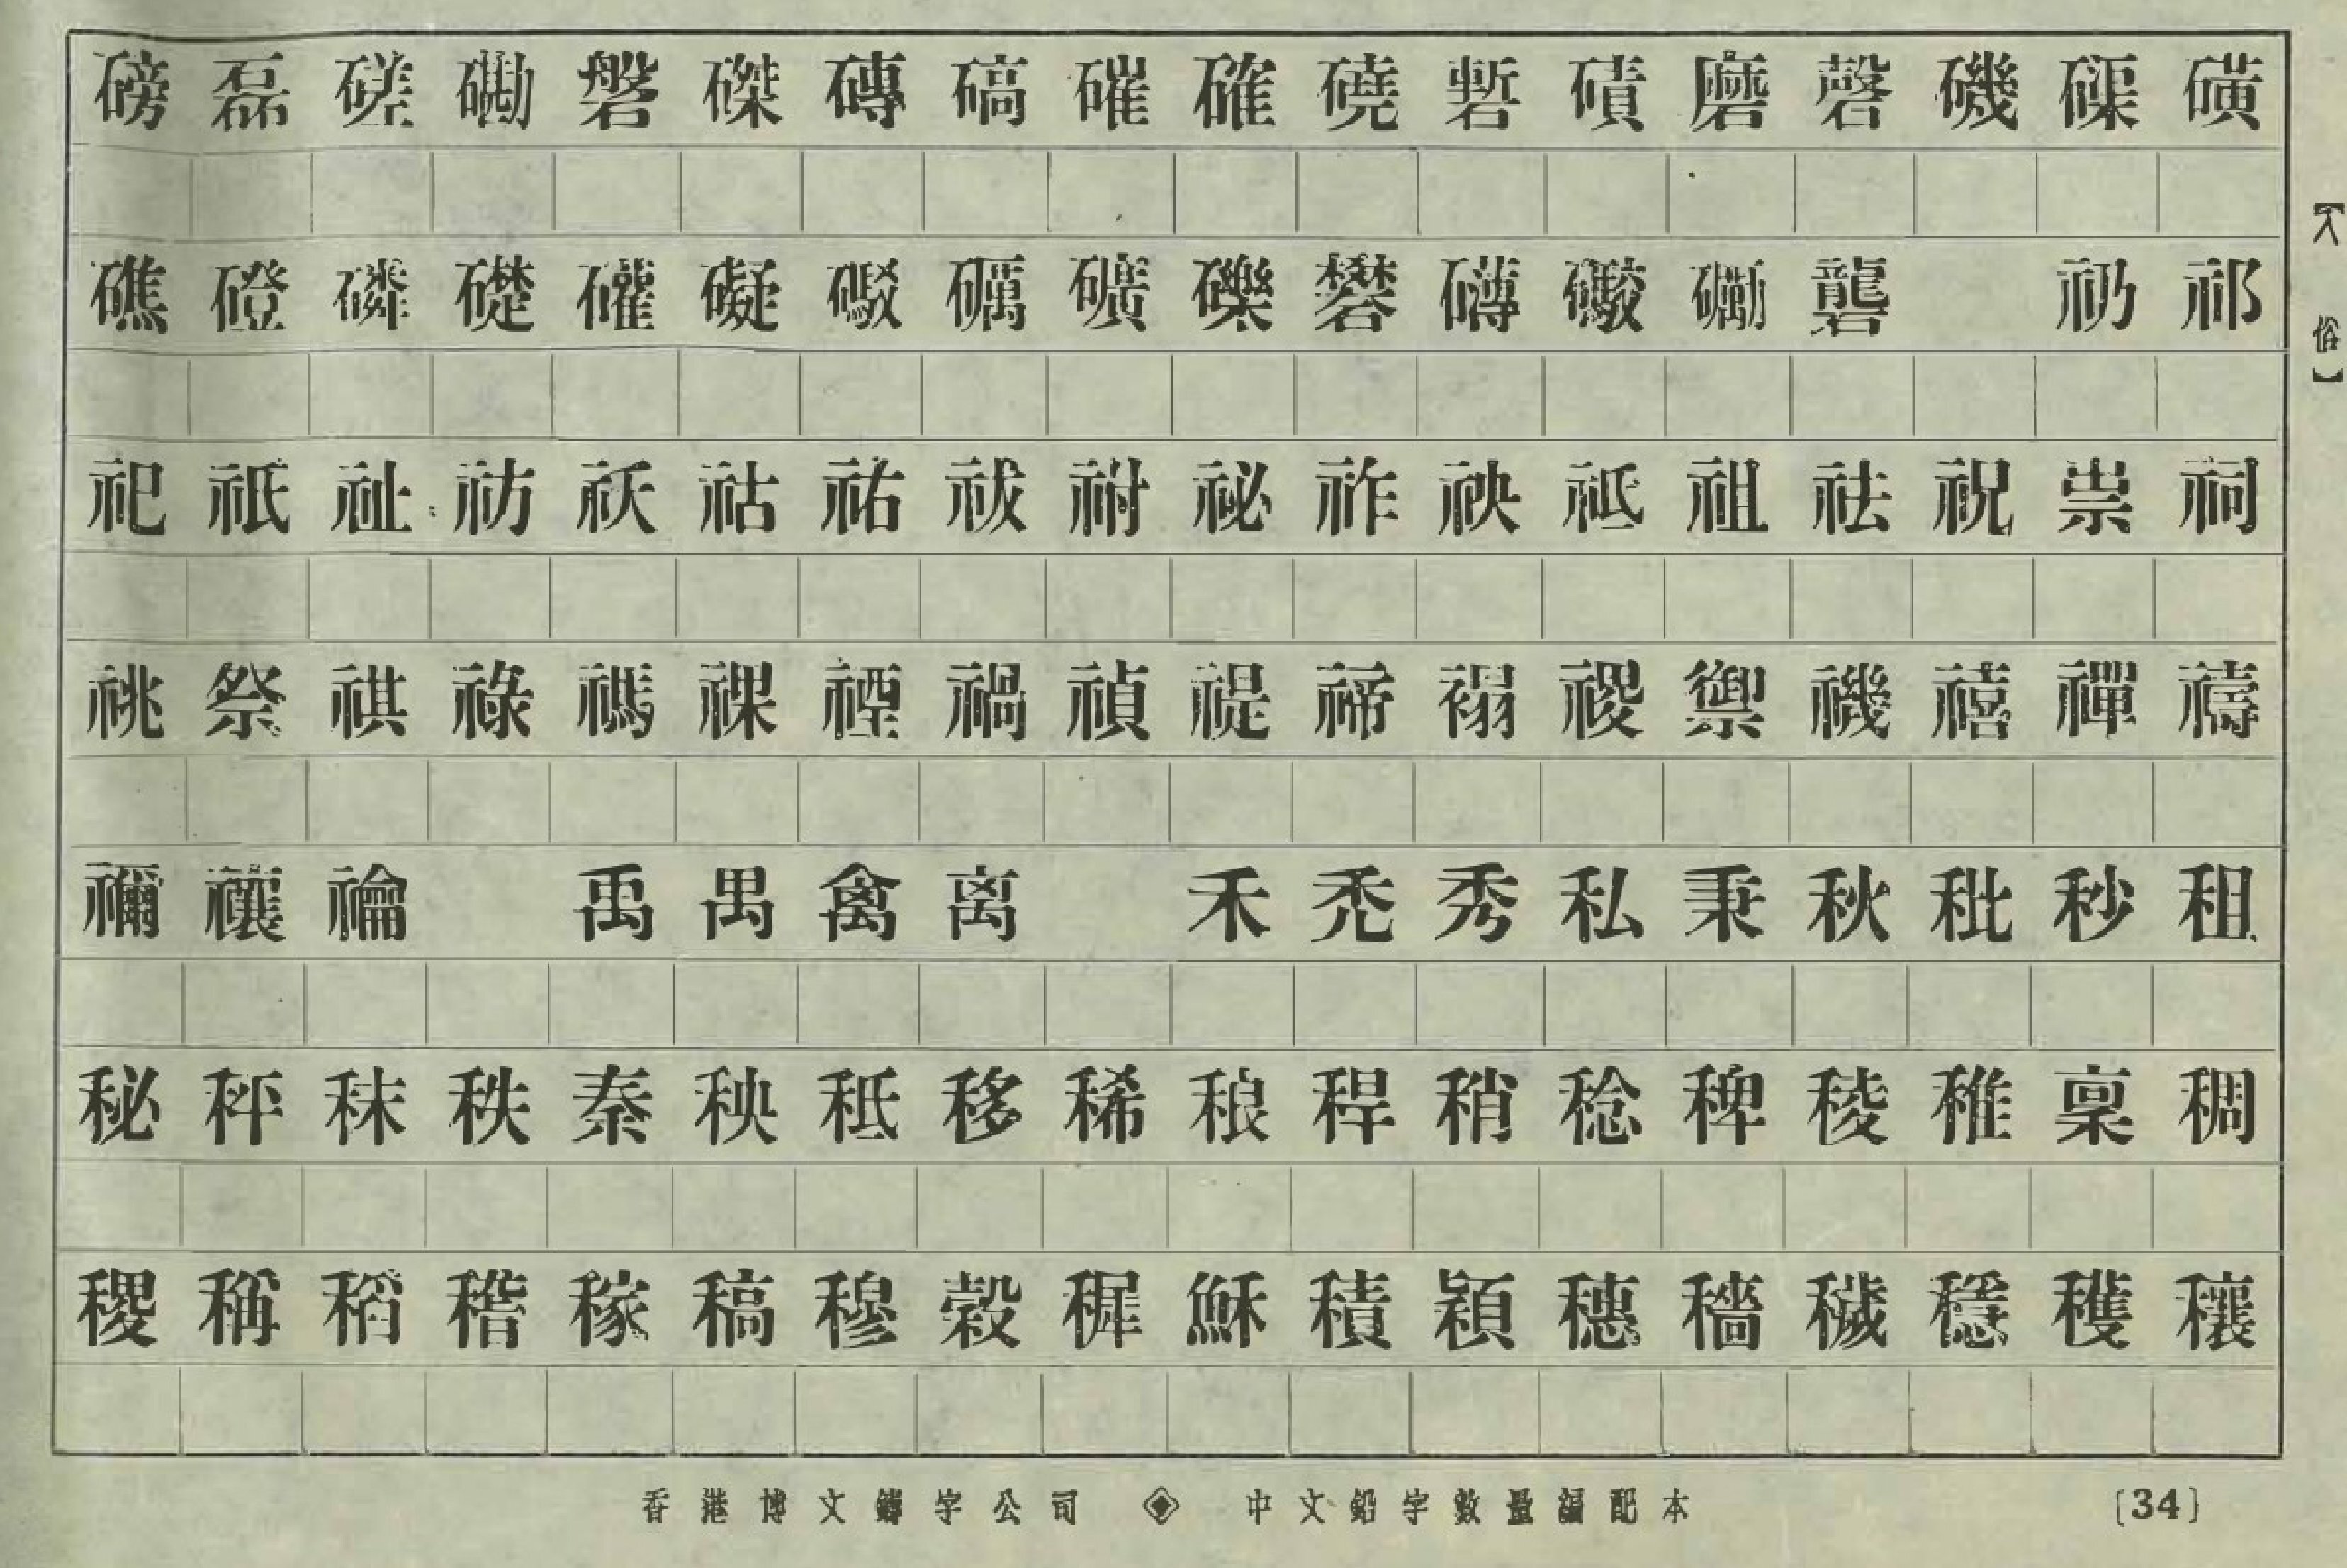 磅磊磋磡磐磔磚碻磪確磽磛磧磨磬磯磲磺
礁磴磷礎礶礙礟礪礦礫礬礴礮礲祁
祀祇祉祊祆祜祐祓祔祕祚祑祗祖祛祝祟祠
祧祭祺祿禡祼禋禍禎禔禘禢禝禦禨禧禪禱
禰禳禴禹禺禽离禾禿秀私秉秋秕秒租
秘秤秣秩秦秧秪移稀稂稈稍稔稗稜稚稟稠
稷稱稻稽稼稿穆穀穉穌積穎穗穡穢穩穫穰
香港博文鑄字公司 中文鉛字數量編配本 〔34〕